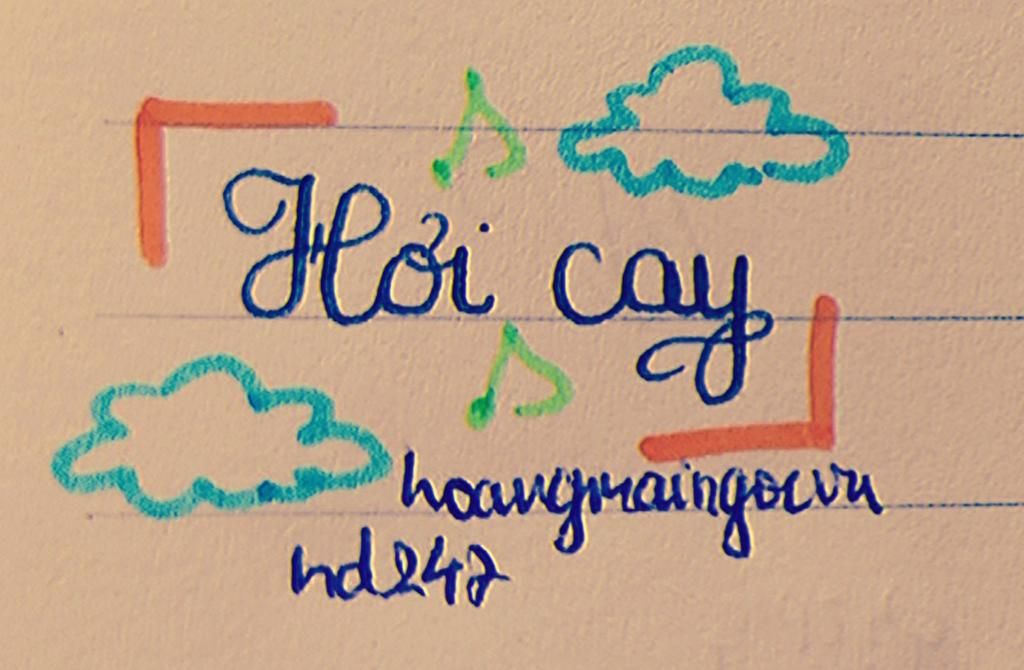 Hỏi cay
hoangmaingocvn
hd247